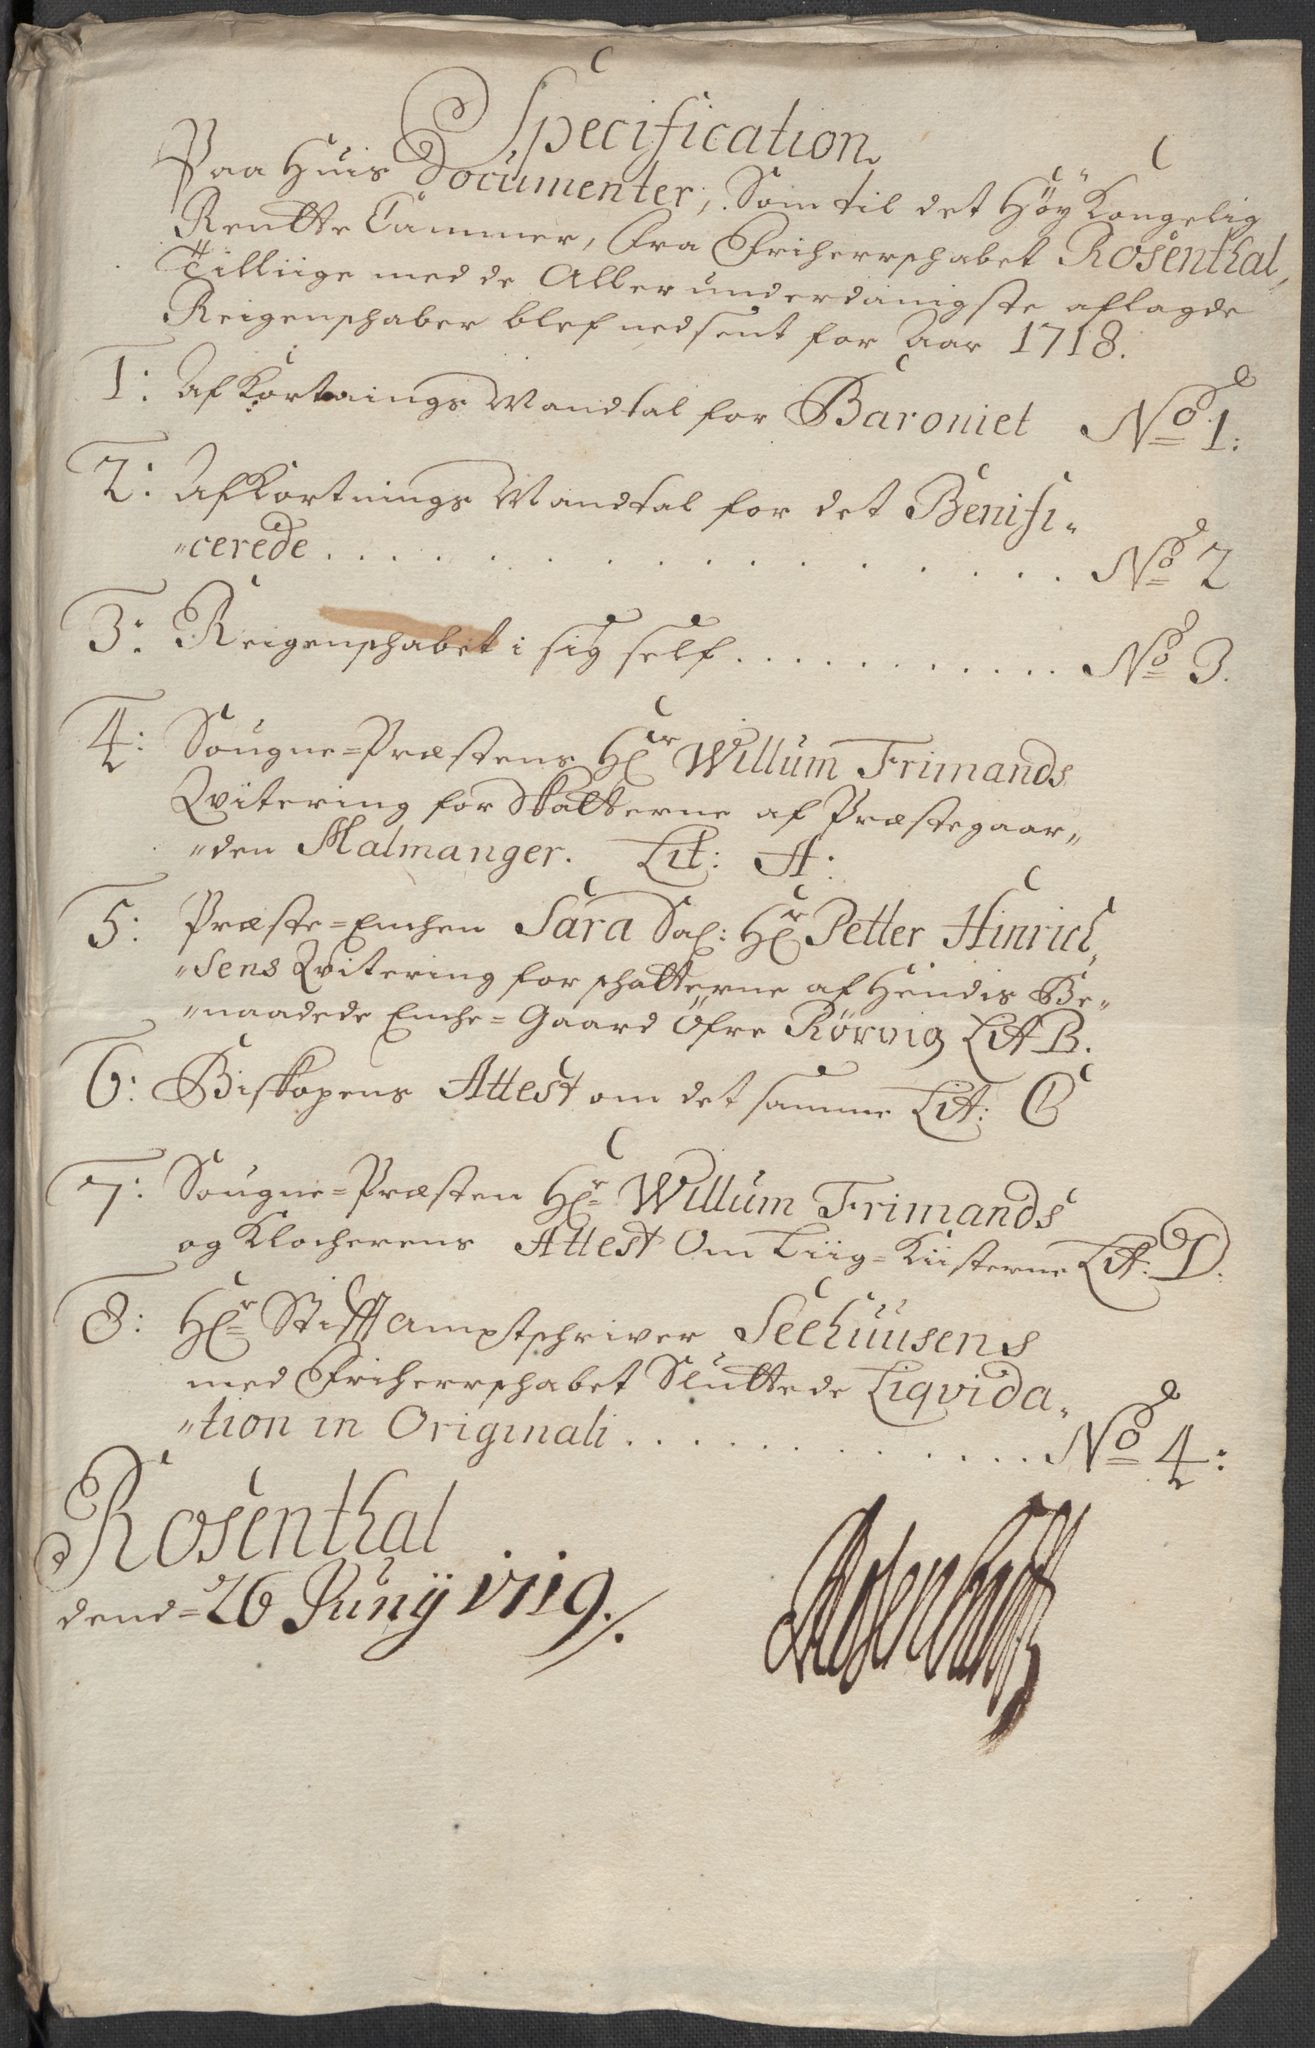 Specification
Paa Huis Documenter, Som til det Höy Kongelig
Rentte Cammer, fra Friherrschabet Rosenthal,
Tilliige med de Allerunderdanigste aflagde
Reigenschaber blef nedsent for Aar 1718.
1: Afkortnings Mandtal for Baroniet No 1:
2: Afkortnings Mandtal for det Benifi-
-cerede . . . . . . . . . . . . . . No 2
3: Reigenschabet i sig self . . . . . . . . . . . . No 3.
4: Sougne=Præstens Hr Willum Frimands
Qvitering for Skatterne af Præstegaar-
-den Malmanger. Lit: A:
5: Præste=Enchen Sara Sal: Hr Petter Hinrich-
-sens Qvitering for schatterne af Hendis Be-
-naadede Enche=Gaard Öfre Rørvig Lit B.
6: Biskopens Attest om det samme Lit: C
7: Sougne=Præsten Hr Willum Frimands
og Klocherens Attest Om Liig=Kiisterne Lit: D.
8: Hr Stifftamptschriver Seehuusens
med Friherrschabet Sluttede Liqvida-
-tion in Originali . . . . . . . . . . . . No 4:
Rosenthal
dend=26 Junij 1719./.